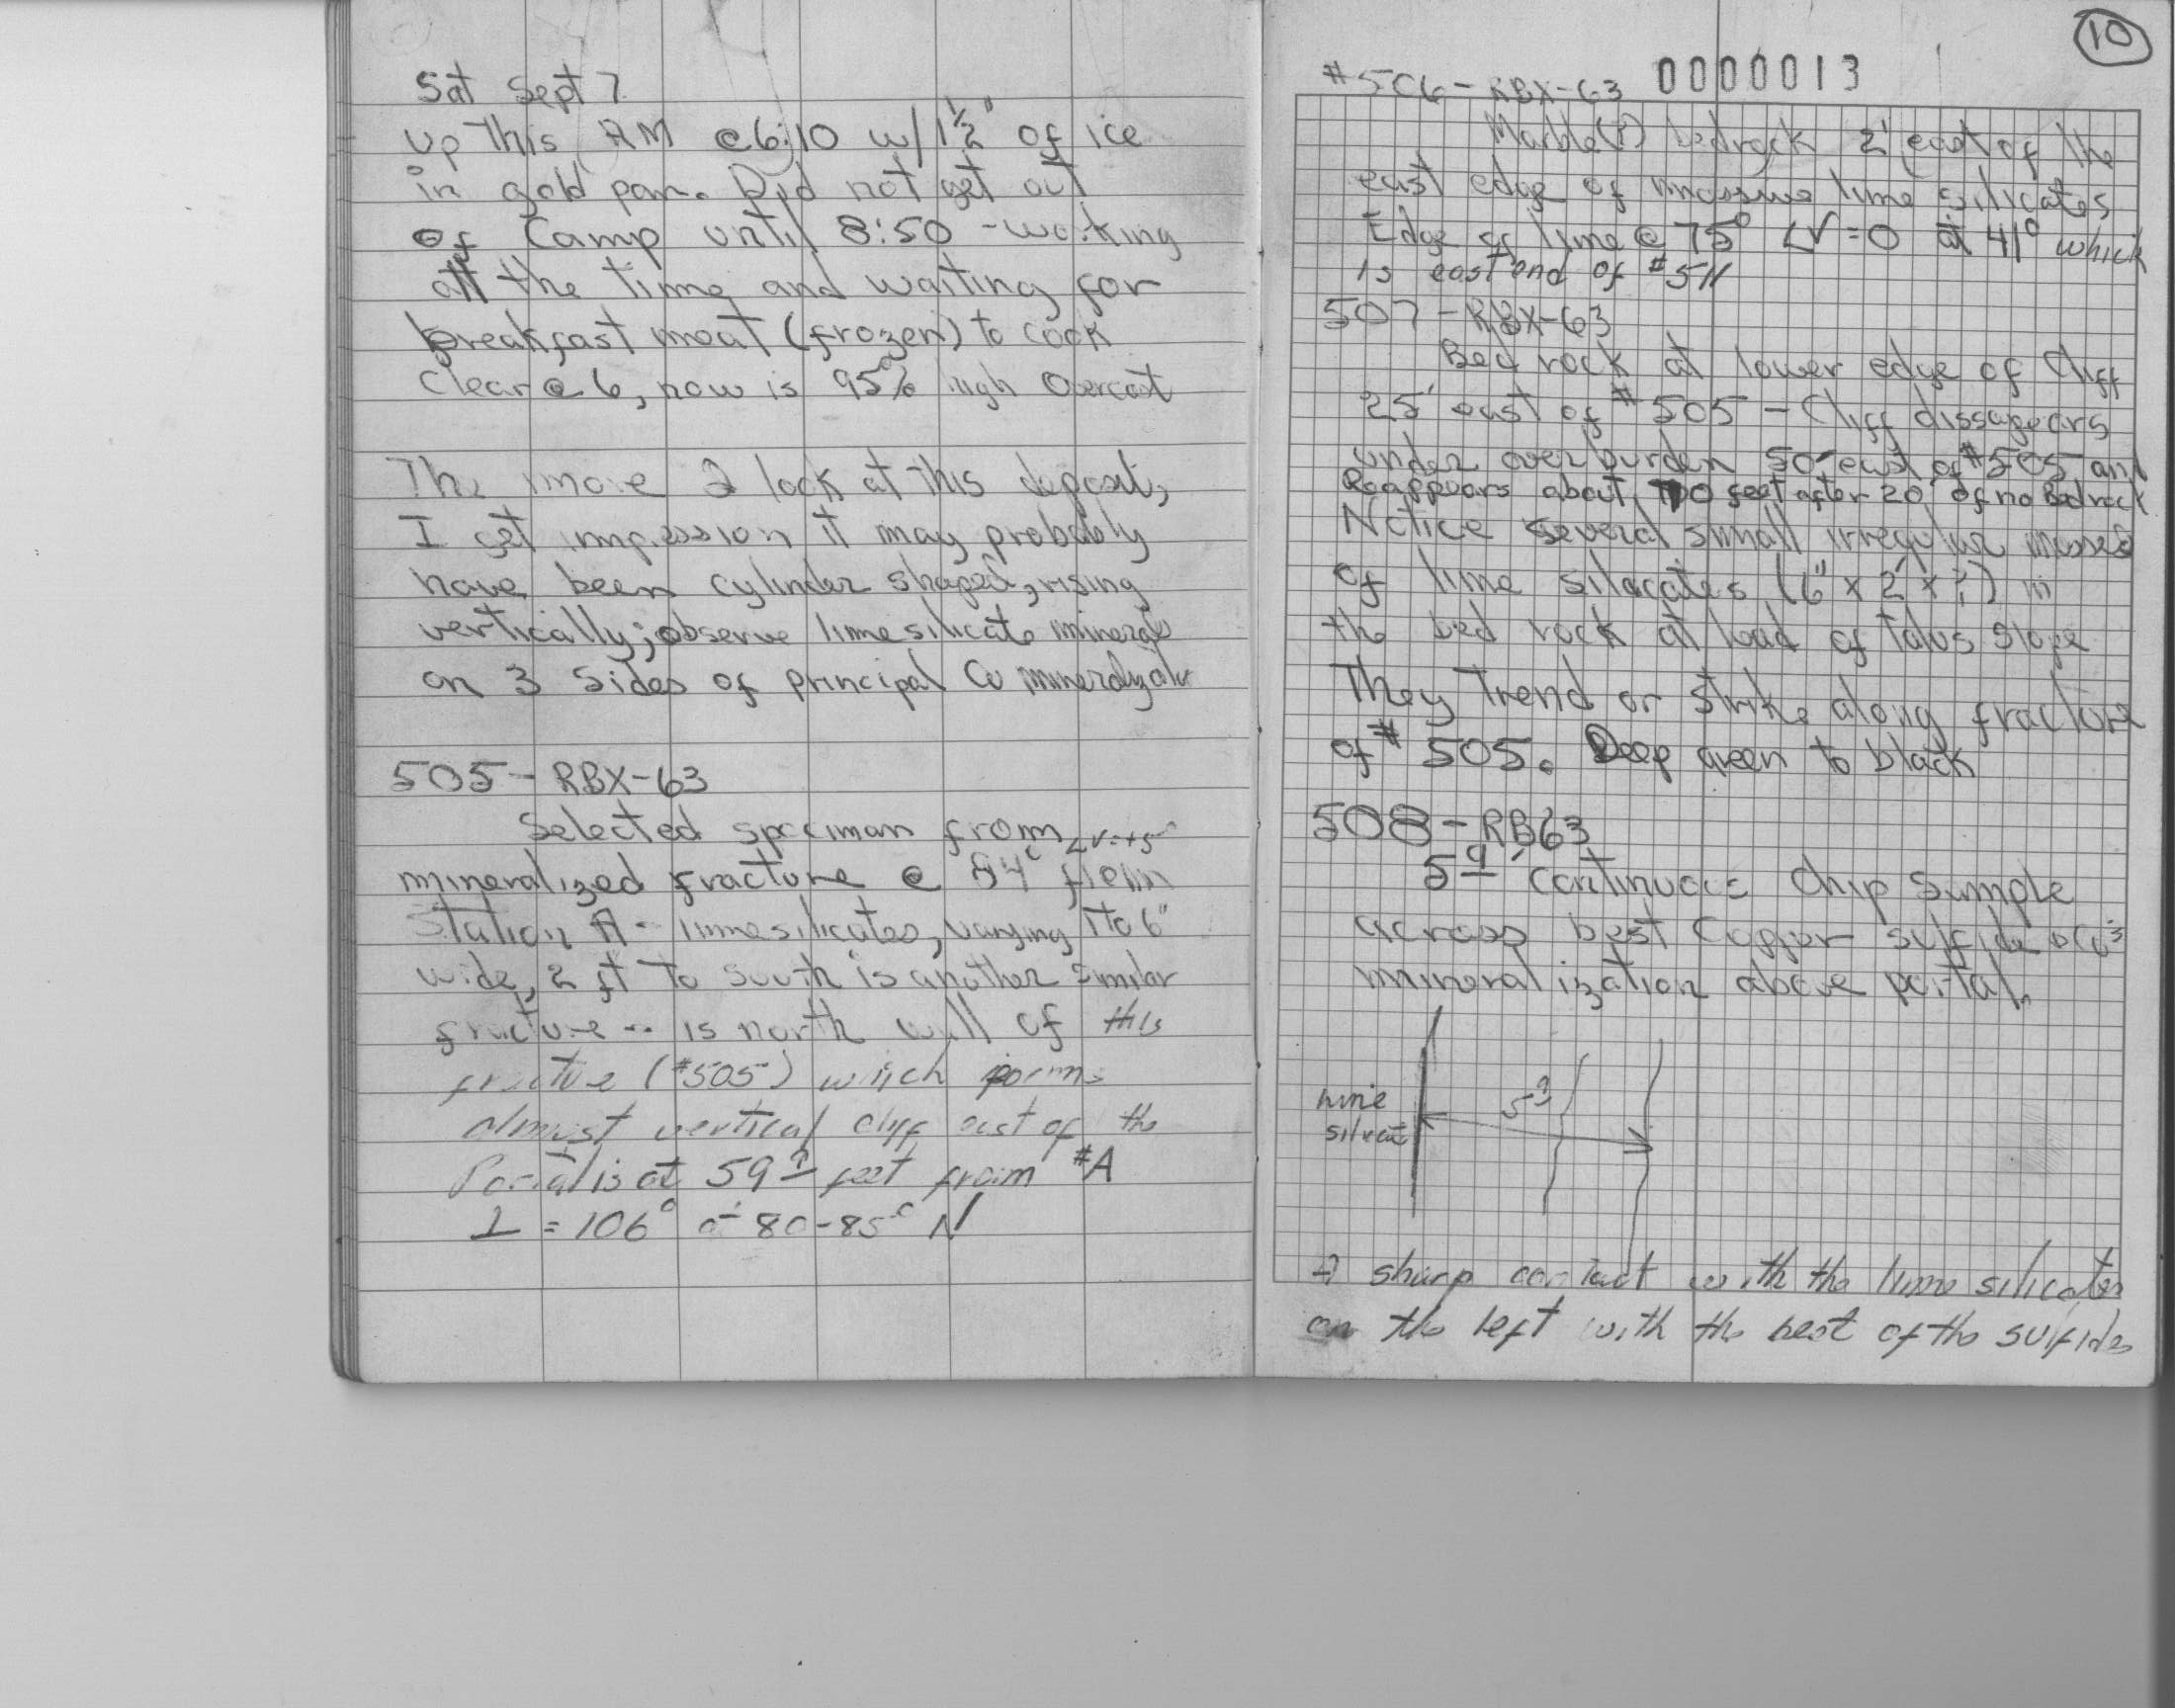 Sat Sept 7
up this AM @ 6:10 w/ 1½" of ice
in gold pan. Did not get out
of Camp until 8:50 - working
all the time and waiting for
breakfast meat (frozen) to cook
Clear @ 6, now is 95% high Overcast
The more I look at this deposit,
I get impression it may probably
have been cylinder shaped, rising
vertically; observe lime silicate minerals
on 3 sides of principal Cu
505 - RBX-63
Selected speciman from
mineralized fracture @ 84° from
Station A - limesilicates, varying 1 to 6"
wide, 2 ft to south is another similar
fracture -- is north wall of this
fracture (#505) which forms
almost vertical cliff east of the
Portal is at 59 feet from #A
= 106° at 80-85° N
10
0000013
#506 - RBX-63
Marble(?) bedrock 2' east of the
east edge of massive lime silicates
Edge of lime @ 75° ∠V=0 at 41° which
is east end of #511
507 - RBX-63
Bed rock at lower edge of Cliff
25' east of #505 - Cliff dissapears
under overburden 50' east of #505 and
Reappears about 70 feet after 20' of no Bedrock
Notice several small irregular masses
of lime silacates (6" x 2' x ?) in
the bed rock at head of Talus Slope
They Trend or Strike along fracture
of #505. Deep green to black
508 - RB63
5 continuous chip sample
across best Copper sulfide
mineralization above portal.
lime
silicate
A sharp contact with the lime silicates
on the left with the best of the sulfides